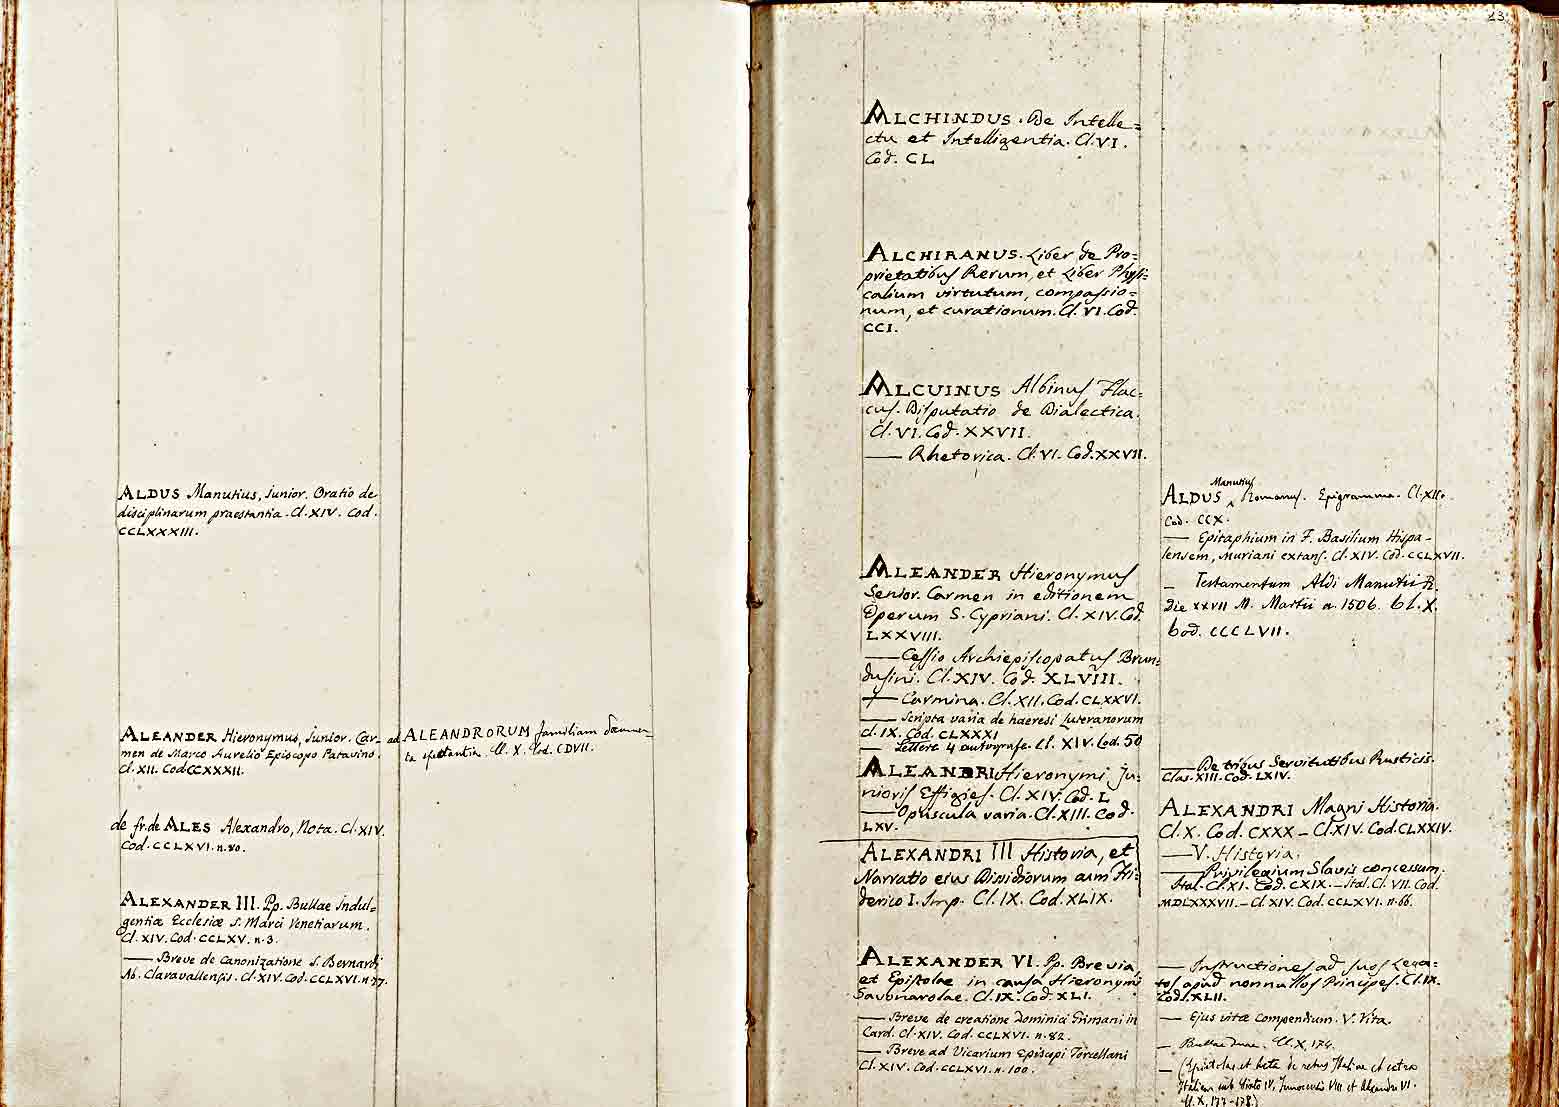 ALDUS Manutius, junior. Oratio de
disciplinarum praestantia. Cl. XIV. Cod.
CCLXXXIII.
ALEANDER Hieronymus, junior. Car-
men de Marco Aurelio Episcopo Patavino.
Cl. XII. Cod. CCXXXII.
de fr. de ALES Alexandro, Nota. Cl. XIV.
Cod. CCLXVI. n. 80.
ALEXANDER III. Pp. Bullae Indul=
gentiæ Ecclesiæ S. Marci Venetiarum.
Cl. XIV. Cod. CCLXV. n. 3.
—— Breve de canonizatione S. Bernardi
Ab. Claravallensis. Cl. XIV. Cod. CCLXVI. n. 77.
ad ALEANDRORUM familiam docume-
ta spectantia. Cl. X. Cod. CDVII.
23
ALCHINDUS. De Intelle=
ctu et Intelligentia. Cl. VI.
Cod. CL
ALCHIRANUS. Liber de Pro=
prietatibus Rerum, et Liber Physi=
calium virtutum, compassio=
num, et curationum. Cl. VI. Cod.
CCI.
ALCUINUS Albinus Flac=
cus. Disputatio de Dialectica.
Cl. VI. Cod. XXVII.
—— Rhetorica. Cl. VI. Cod. XXVII.
ALEANDER Hieronymus
Senior. Carmen in editionem
Operum S. Cypriani. Cl. XIV. Cod.
LXXVIII.
—— Cessio Archiepiscopatus Brun=
dusini. Cl. XIV. Cod. XLVIII.
—— Carmina. Cl. XII. Cod. CLXXVI.
—— Scripta varia de haeresi Luteranorum
Cl. IX. Cod. CLXXXI
—— Lettere 4 autografe. Cl. XIV. Cod. 50
ALEANDRI Hieronymi ju=
nioris Effigies. Cl. XIV. Cod. L
—— Opuscula varia. Cl. XIII. Cod.
LXV.
ALEXANDRI III Historia, et
Narratio ejus Dissidiorum cum Fri=
derico I. Imp. Cl. IX. Cod. XLIX.
ALEXANDER VI. Pp. Brevia,
et Epistolae in causa Hieronymi
Savonarolae. Cl. IX. Cod. XLI.
—— Breve de creatione Dominici Grimani in
Card. Cl. XIV. Cod. CCLXVI. n. 82.
—— Breve ad Vicarium Episcopi Torcellani
Cl. XIV. Cod. CCLXVI. n. 100.
ALDUS Manutius Romanus. Epigramma. Cl. XII.
Cod. CCX.
—— Epitaphium in F. Basilium Hispa-
lensem, Muriani extans. Cl. XIV. Cod. CCLXVII.
— Testamentum Aldi Manutii R.
die XXVII M. Martii a. 1506. Cl. X.
Cod. CCCLVII.
—— De tribus Servitutibus Rusticis.
Clas. XIII. Cod. LXIV.
ALEXANDRI Magni Historia.
Cl. X. Cod. CXXX — Cl. XIV. Cod. CLXXIV.
—— V. Historia.
—— Privilegium Slavis concessum.
Ital. Cl. XI. Cod. CXIX. — Ital. Cl. VII. Cod.
MDLXXXVII. — Cl. XIV. Cod. CCLXVI. n. 66.
—— Instructiones ad suos Lega=
tos apud nonnullos Principes. Cl. IX.
Cod. XLII.
—— Ejus vitæ compendium. V. Vita.
— Bullae duae. Cl. X, 174.
— (Epistolae et Acta de rebus Italiae et extra
Italiam sub Sixto IV, Innocentio VIII et Alexandro VI.
Cl. X, 177-178.)